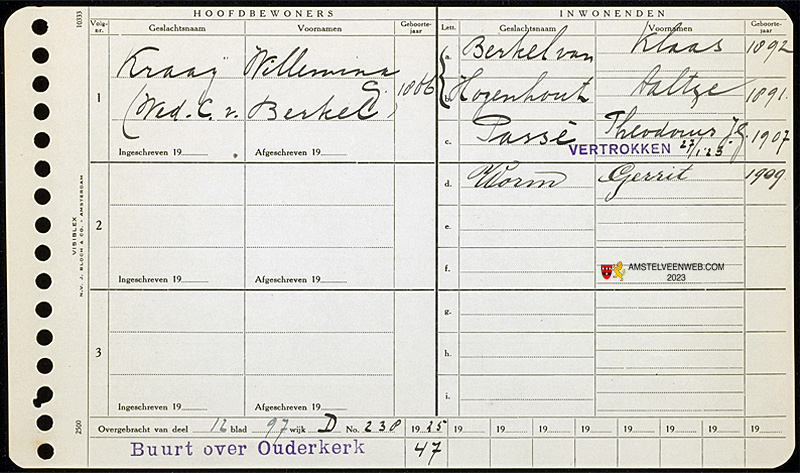 HOOFDBEWONERS
INWONENDEN
10333
Volg-
nr.
Geslachtsnaam
Voornamen
Geboorte-
jaar
Lett.
Geslachtsnaam
Voornamen
Geboorte-
jaar
1
Kraay Willemina
G. 1866
(Wed. C. v. Berkel)
Ingeschreven 19
Afgeschreven 19
a. Berkel van Klaas 1892
b. Hogenhout Aaltje 1891.
c. Passé Theodorus J.G. 1907
VERTROKKEN 27/1.23
d. Worm Gerrit 1909.
2
Ingeschreven 19
Afgeschreven 19
e.
f.
AMSTELVEENWEB.COM
2023
3
Ingeschreven 19
Afgeschreven 19
g.
h.
i.
VISIBLEX
N.V. J. BLOCH & CO. - AMSTERDAM
2500
Overgebracht van deel 12 blad 97 wijk D No. 238 1925 19 19 19 19 19 19 19 19
Buurt over Ouderkerk 47